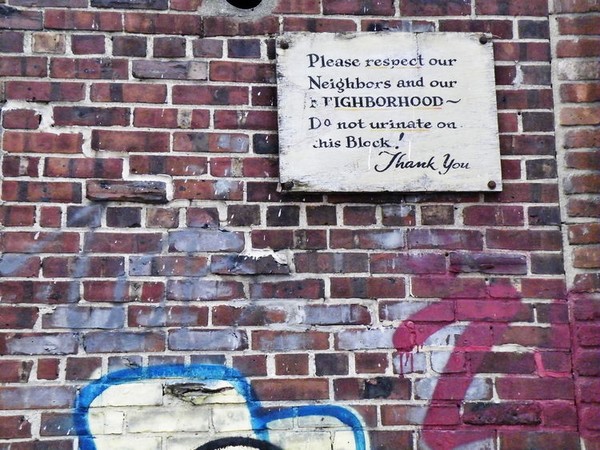 Please respect our
Neighbors and our
NEIGHBORHOOD ~
Do not urinate on
this Block!
Thank You